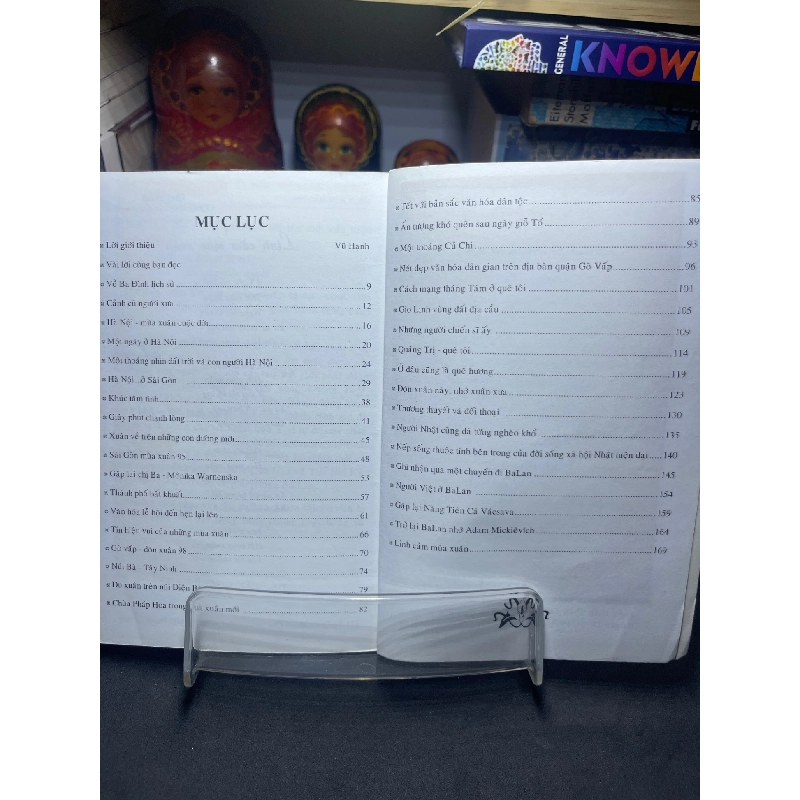 GENERAL KNOWL
MỤC LỤC
Lời giới thiệu Vũ Hạnh
Vài lời cùng bạn đọc
Về Ba Đình lịch sử 9
Cảnh cũ người xưa 12
Hà Nội - mùa xuân cuộc đời 16
Một ngày ở Hà Nội 20
Một thoáng nhìn đất trời và con người Hà Nội 24
Hà Nội ..ở Sài Gòn 29
Khúc tâm tình 38
Giây phút chạnh lòng 41
Xuân về trên những con đường mới 45
Sài Gòn mùa xuân 95 48
Gặp lại chị Ba - Monika Warnenska 53
Thành phố bất khuất 57
Văn hóa lễ hội đến hẹn lại lên 61
Tín hiệu vui của những mùa xuân 66
Gò vấp - đón xuân 98 70
Núi Bà - Tây Ninh 74
Du xuân trên núi Điện B 79
Chùa Pháp Hoa trong xuân mới 82
Tết với bản sắc văn hóa dân tộc 85
Ấn tượng khó quên sau ngày giỗ Tổ 89
Một thoáng Củ Chi 93
Nét đẹp văn hóa dân gian trên địa bàn quận Gò Vấp 96
Cách mạng tháng Tám ở quê tôi 101
Gio Linh vùng đất địa cầu 105
Những người chiến sĩ ấy 109
Quảng Trị - quê tôi 114
Ở đâu cũng là quê hương 119
Đón xuân này, nhớ xuân xưa 123
Trương thuyết và đối thoại 130
Người Nhật cũng đã từng nghèo khổ 135
Nếp sống thuộc tính bên trong của đời sống xã hội Nhật hiện đại 140
Ghi nhận qua một chuyến đi BaLan 145
Người Việt ở BaLan 154
Gặp lại Nàng Tiên Cá Vácsava 159
Trở lại BaLan nhớ Adam Mickiêvich 164
Linh cảm mùa xuân 169